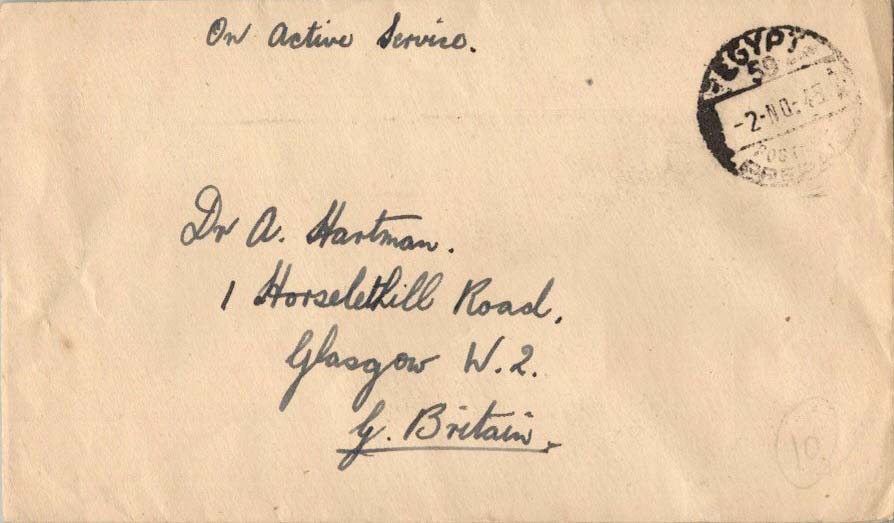 On Active Service.
EGYPT
59
-2-NO.45
POSTAGE
PREPAID
Dr A. Hartman.
1 Horselethill Road,
Glasgow W.2.
G. Britain.
10